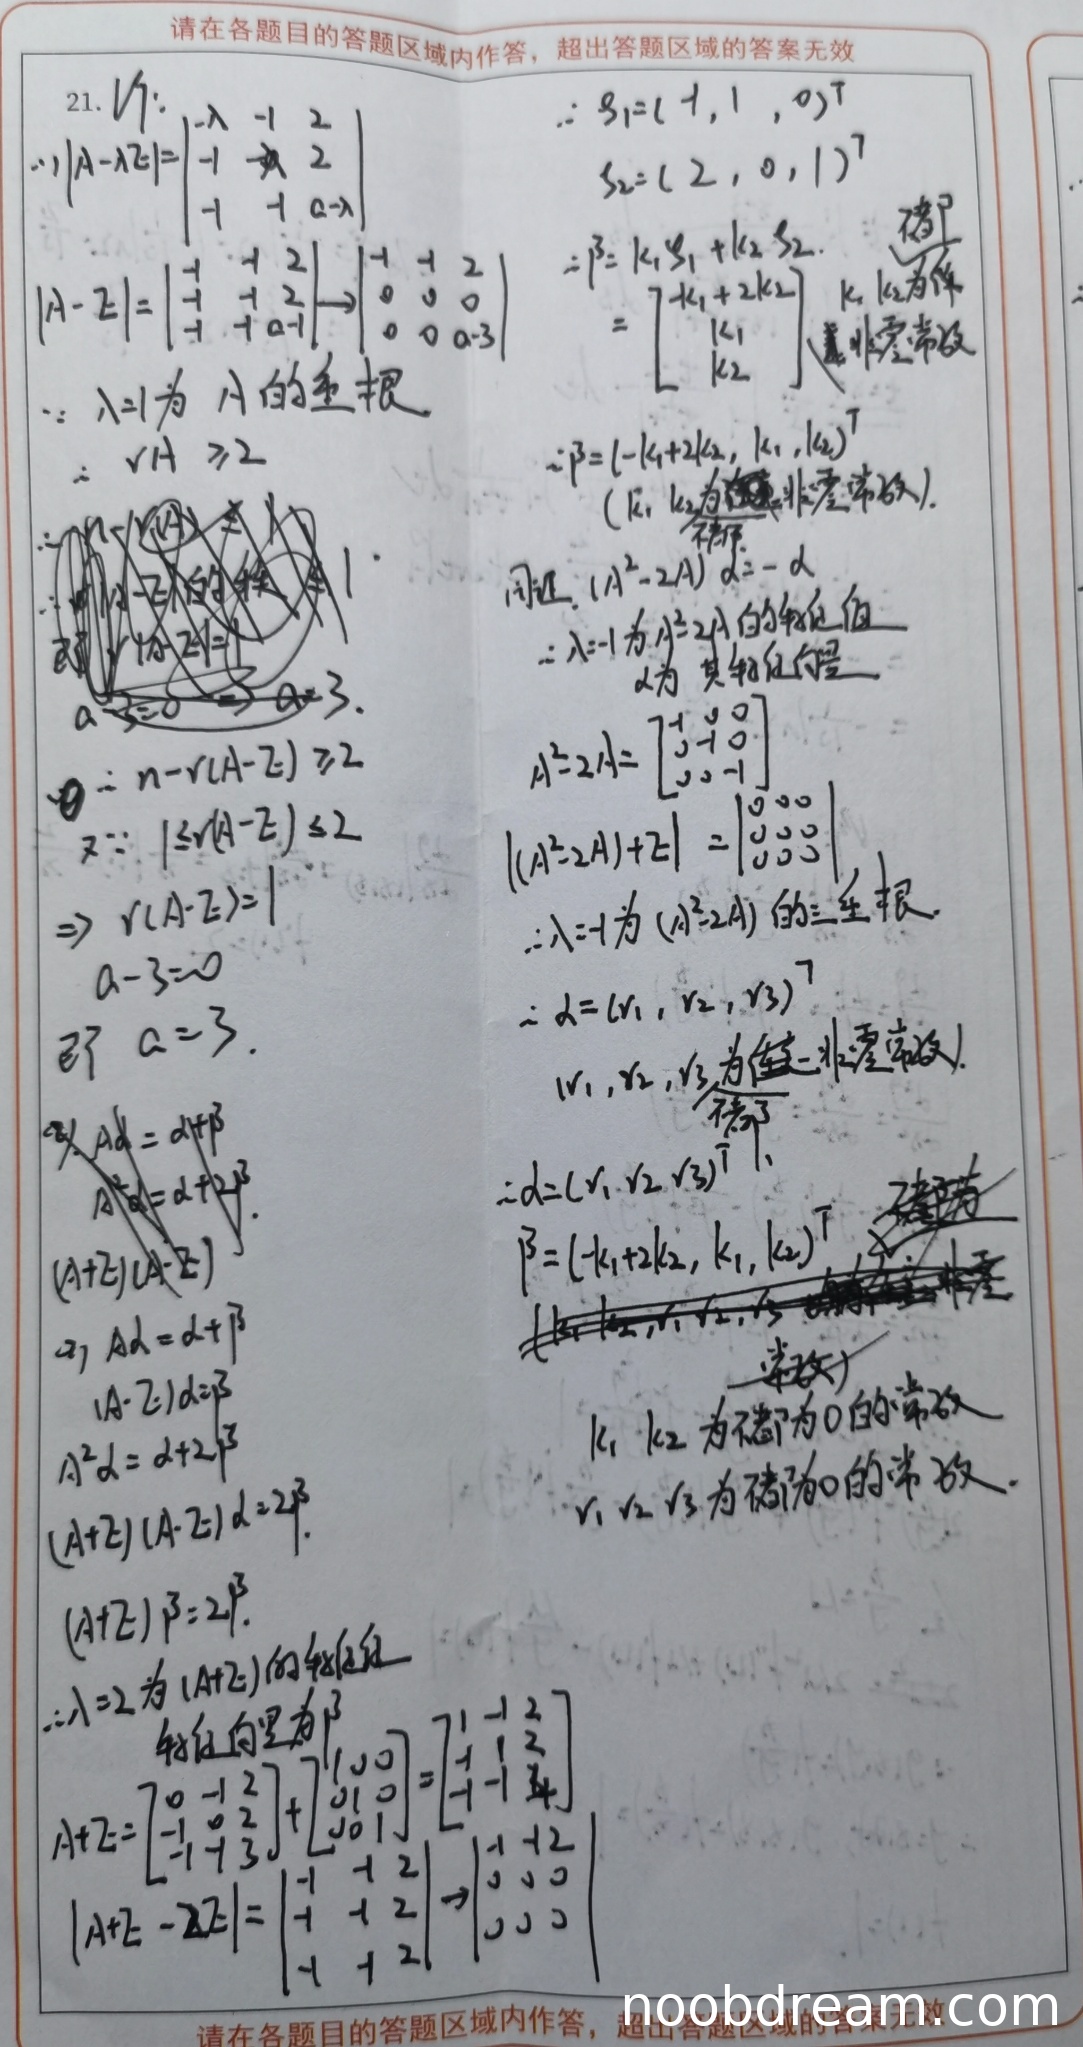 请在各题目的答题区域内作答，超出答题区域的答案无效
21.
∴|A-λE|=|-λ -1 2
-1 -λ 2
-1 -1 a-λ|
|A-E|=|-1 -1 2
-1 -1 2
-1 -1 a-1|→|-1 -1 2
0 0 0
0 0 a-3|
∵ λ=1为 A 的重根
∴ rA ≥2
a-3=0 ⇒ a=3.
∴ n-r(A-E)≥2
又∵ 1≤r(A-E)≤2
⇒ r(A-E)=1
a-3=0
即 a=3.
Aα=α+β
A²α=α+2β.
(A+E)(A-E)
(2) Aα=α+β
(A-E)α=β
A²α=α+2β
(A+E)(A-E)α=2β.
(A+E)β=2β.
∴λ=2为(A+E)的特征值
特征向量为β
A+E=[0 -1 2
-1 0 2
-1 -1 3]+[1 0 0
0 1 0
0 0 1]=[1 -1 2
-1 1 2
-1 -1 4]
|A+E-2E|=|-1 -1 2
-1 -1 2
-1 -1 2|→|-1 -1 2
0 0 0
0 0 0|
∴ ξ1=(-1,1,0)ᵀ
ξ2=(2,0,1)ᵀ
∴β=k1ξ1+k2ξ2.
=[-k1+2k2
k1
k2]
k1 k2为
非零常数
∴β=(-k1+2k2, k1, k2)ᵀ
(k1 k2为 非零常数).
同理.(A²-2A)α=-α
∴λ=-1为A²-2A的特征值
α为 其特征向量
A²-2A=[-1 0 0
0 -1 0
0 0 -1]
|(A²-2A)+E|=|0 0 0
0 0 0
0 0 0|
∴λ=-1为(A²-2A)的三重根.
∴α=(r1, r2, r3)ᵀ
(r1, r2, r3为 非零常数).
∴α=(r1 r2 r3)ᵀ
β=(-k1+2k2, k1, k2)ᵀ
(k1 k2, r1 r2, r3 非零
常数)
k1 k2为不都为0的常数
r1 r2 r3为不都为0的常数.
noobdream.com
请在各题目的答题区域内作答，超出答题区域的答案无效